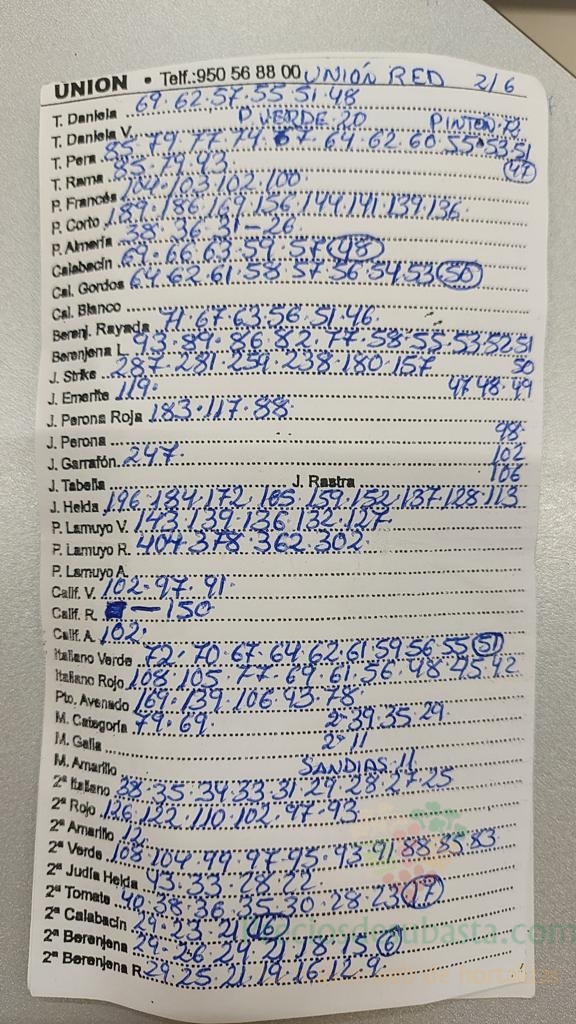 UNION • Telf.:950 56 88 00 UNIÓN RED 2/6
T. Daniela 69·62·57·55·51·48
T. Daniela V. P. VERDE·20 PINTON·13
T. Pera 85·79·77·74·67·64·62·60·55·53·51
T. Rama 85·79·43 (47)
P. Francés 104·103·102·100
P. Corto 189·186·169·156·144·141·139·136
P. Almería 38·36·31-26
Calabacín 69·66·63·59·57 (48)
Cal. Gordos 64·62·61·58·57·56·54·53 (50)
Cal. Blanco
Berenj. Rayada 71·67·63·56·51·46
Berenjena L. 93·89·86·82·77·58·55·53·52·51
J. Strike 287·281·259·238·180·157 50
J. Emerite 119· 47 48·49
J. Perona Roja 183·117·88
J. Perona 98·
J. Garrafón 247· 102
J. Tabella J. Rastra 106
J. Helda 196·184·172·165·159·152·137·128·113
P. Lamuyo V. 143·139·136·132·127
P. Lamuyo R. 404·378·362·302
P. Lamuyo A.
Calif. V. 102·97·91·
Calif. R. — 150
Calif. A. 102·
Italiano Verde 72·70·67·64·62·61·59·56·55 (51)
Italiano Rojo 108·105·77·69·61·56·48·45·42
Pto. Avenado 169·139·106·93·78
M. Categoría 79·69· 2ª 39·35·29·
M. Galia 2ª 11
M. Amarillo SANDIAS·11
2ª Italiano 38·35·34·33·31·29·28·27·25
2ª Rojo 126·122·110·102·97·93
2ª Amarillo 12
2ª Verde 108·104·99·97·95·93·91·88·85·83
2ª Judía Helda 43·33·28·22
2ª Tomate 40·38·36·35·30·28·23 (17)
2ª Calabacín 29·23·21
2ª Berenjena 29·26·24·21·18·15 (6)
2ª Berenjena R. 29·25·21·19·16·12·9